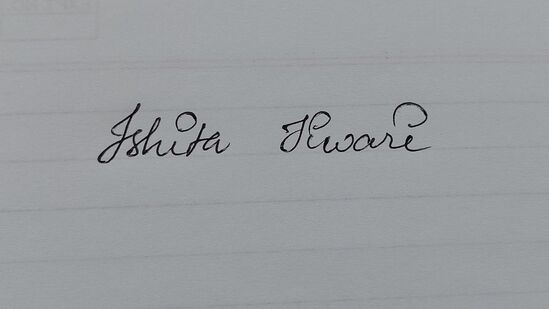 Ishita Tiwari